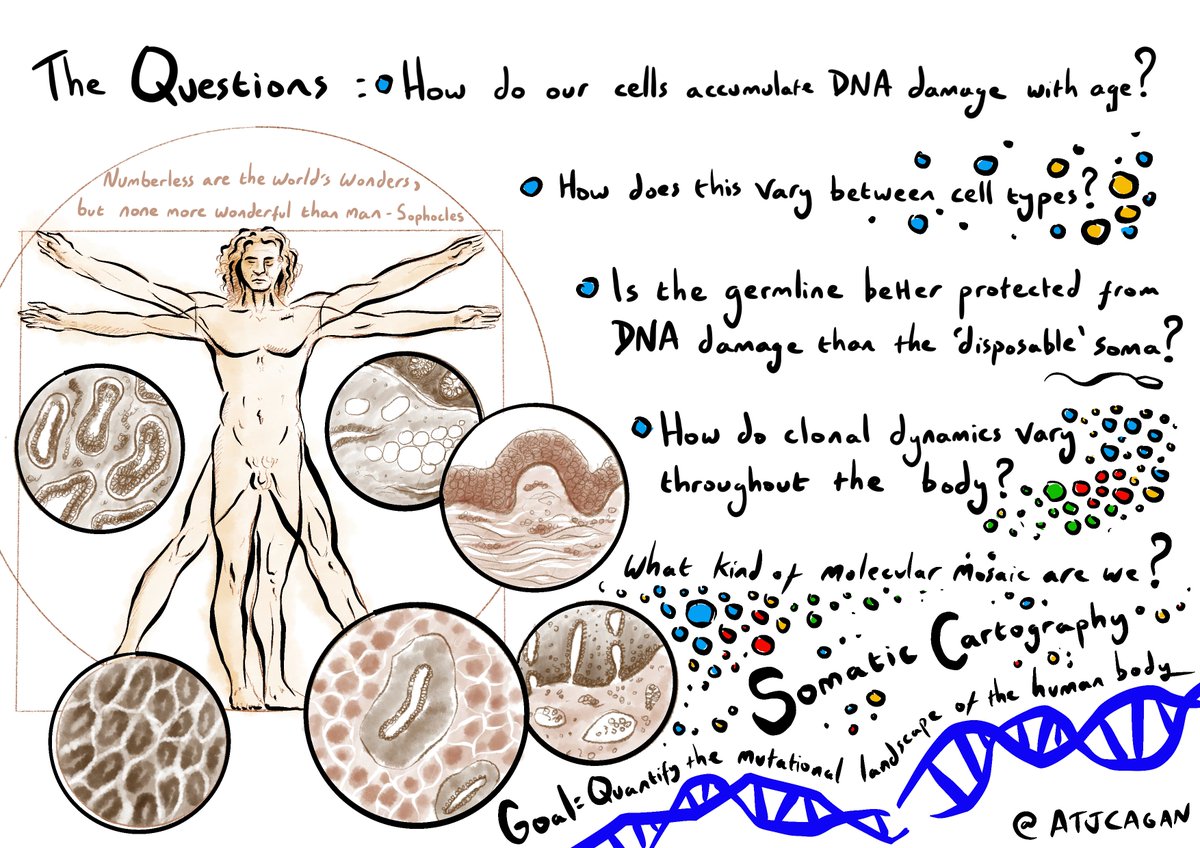 The Questions : How do our cells accumulate DNA damage with age?
Numberless are the world's wonders,
but none more wonderful than man - Sophocles
How does this vary between cell types?
Is the germline better protected from
DNA damage than the 'disposable' soma?
How do clonal dynamics vary
throughout the body?
What kind of molecular mosaic are we?
Somatic Cartography
Goal: Quantify the mutational landscape of the human body
@ATJCAGAN